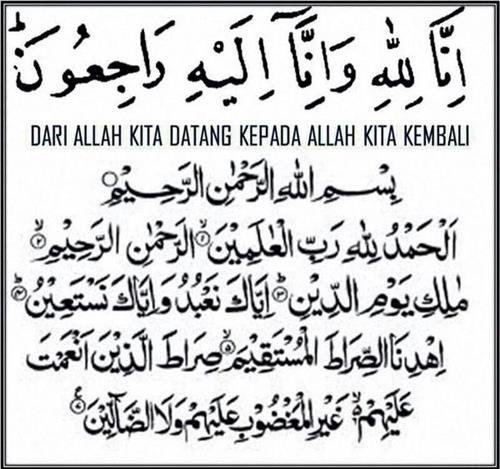 اِنَّا لِلّٰهِ وَاِنَّآ اِلَيْهِ رَاجِعُوْنَ
DARI ALLAH KITA DATANG KEPADA ALLAH KITA KEMBALI
بِسْمِ اللّٰهِ الرَّحْمٰنِ الرَّحِيْمِ
اَلْحَمْدُ لِلّٰهِ رَبِّ الْعٰلَمِيْنَ ۙ﴿۱﴾ الرَّحْمٰنِ الرَّحِيْمِ ۙ﴿۲﴾
مٰلِكِ يَوْمِ الدِّيْنِ ﴿۳﴾ اِيَّاكَ نَعْبُدُ وَاِيَّاكَ نَسْتَعِيْنُ ﴿۴﴾
اِهْدِنَا الصِّرَاطَ الْمُسْتَقِيْمَ ۙ﴿۵﴾ صِرَاطَ الَّذِيْنَ اَنْعَمْتَ
عَلَيْهِمْ ۙ﴿۶﴾ غَيْرِ الْمَغْضُوْبِ عَلَيْهِمْ وَلَا الضَّآلِّيْنَ ﴿۷﴾